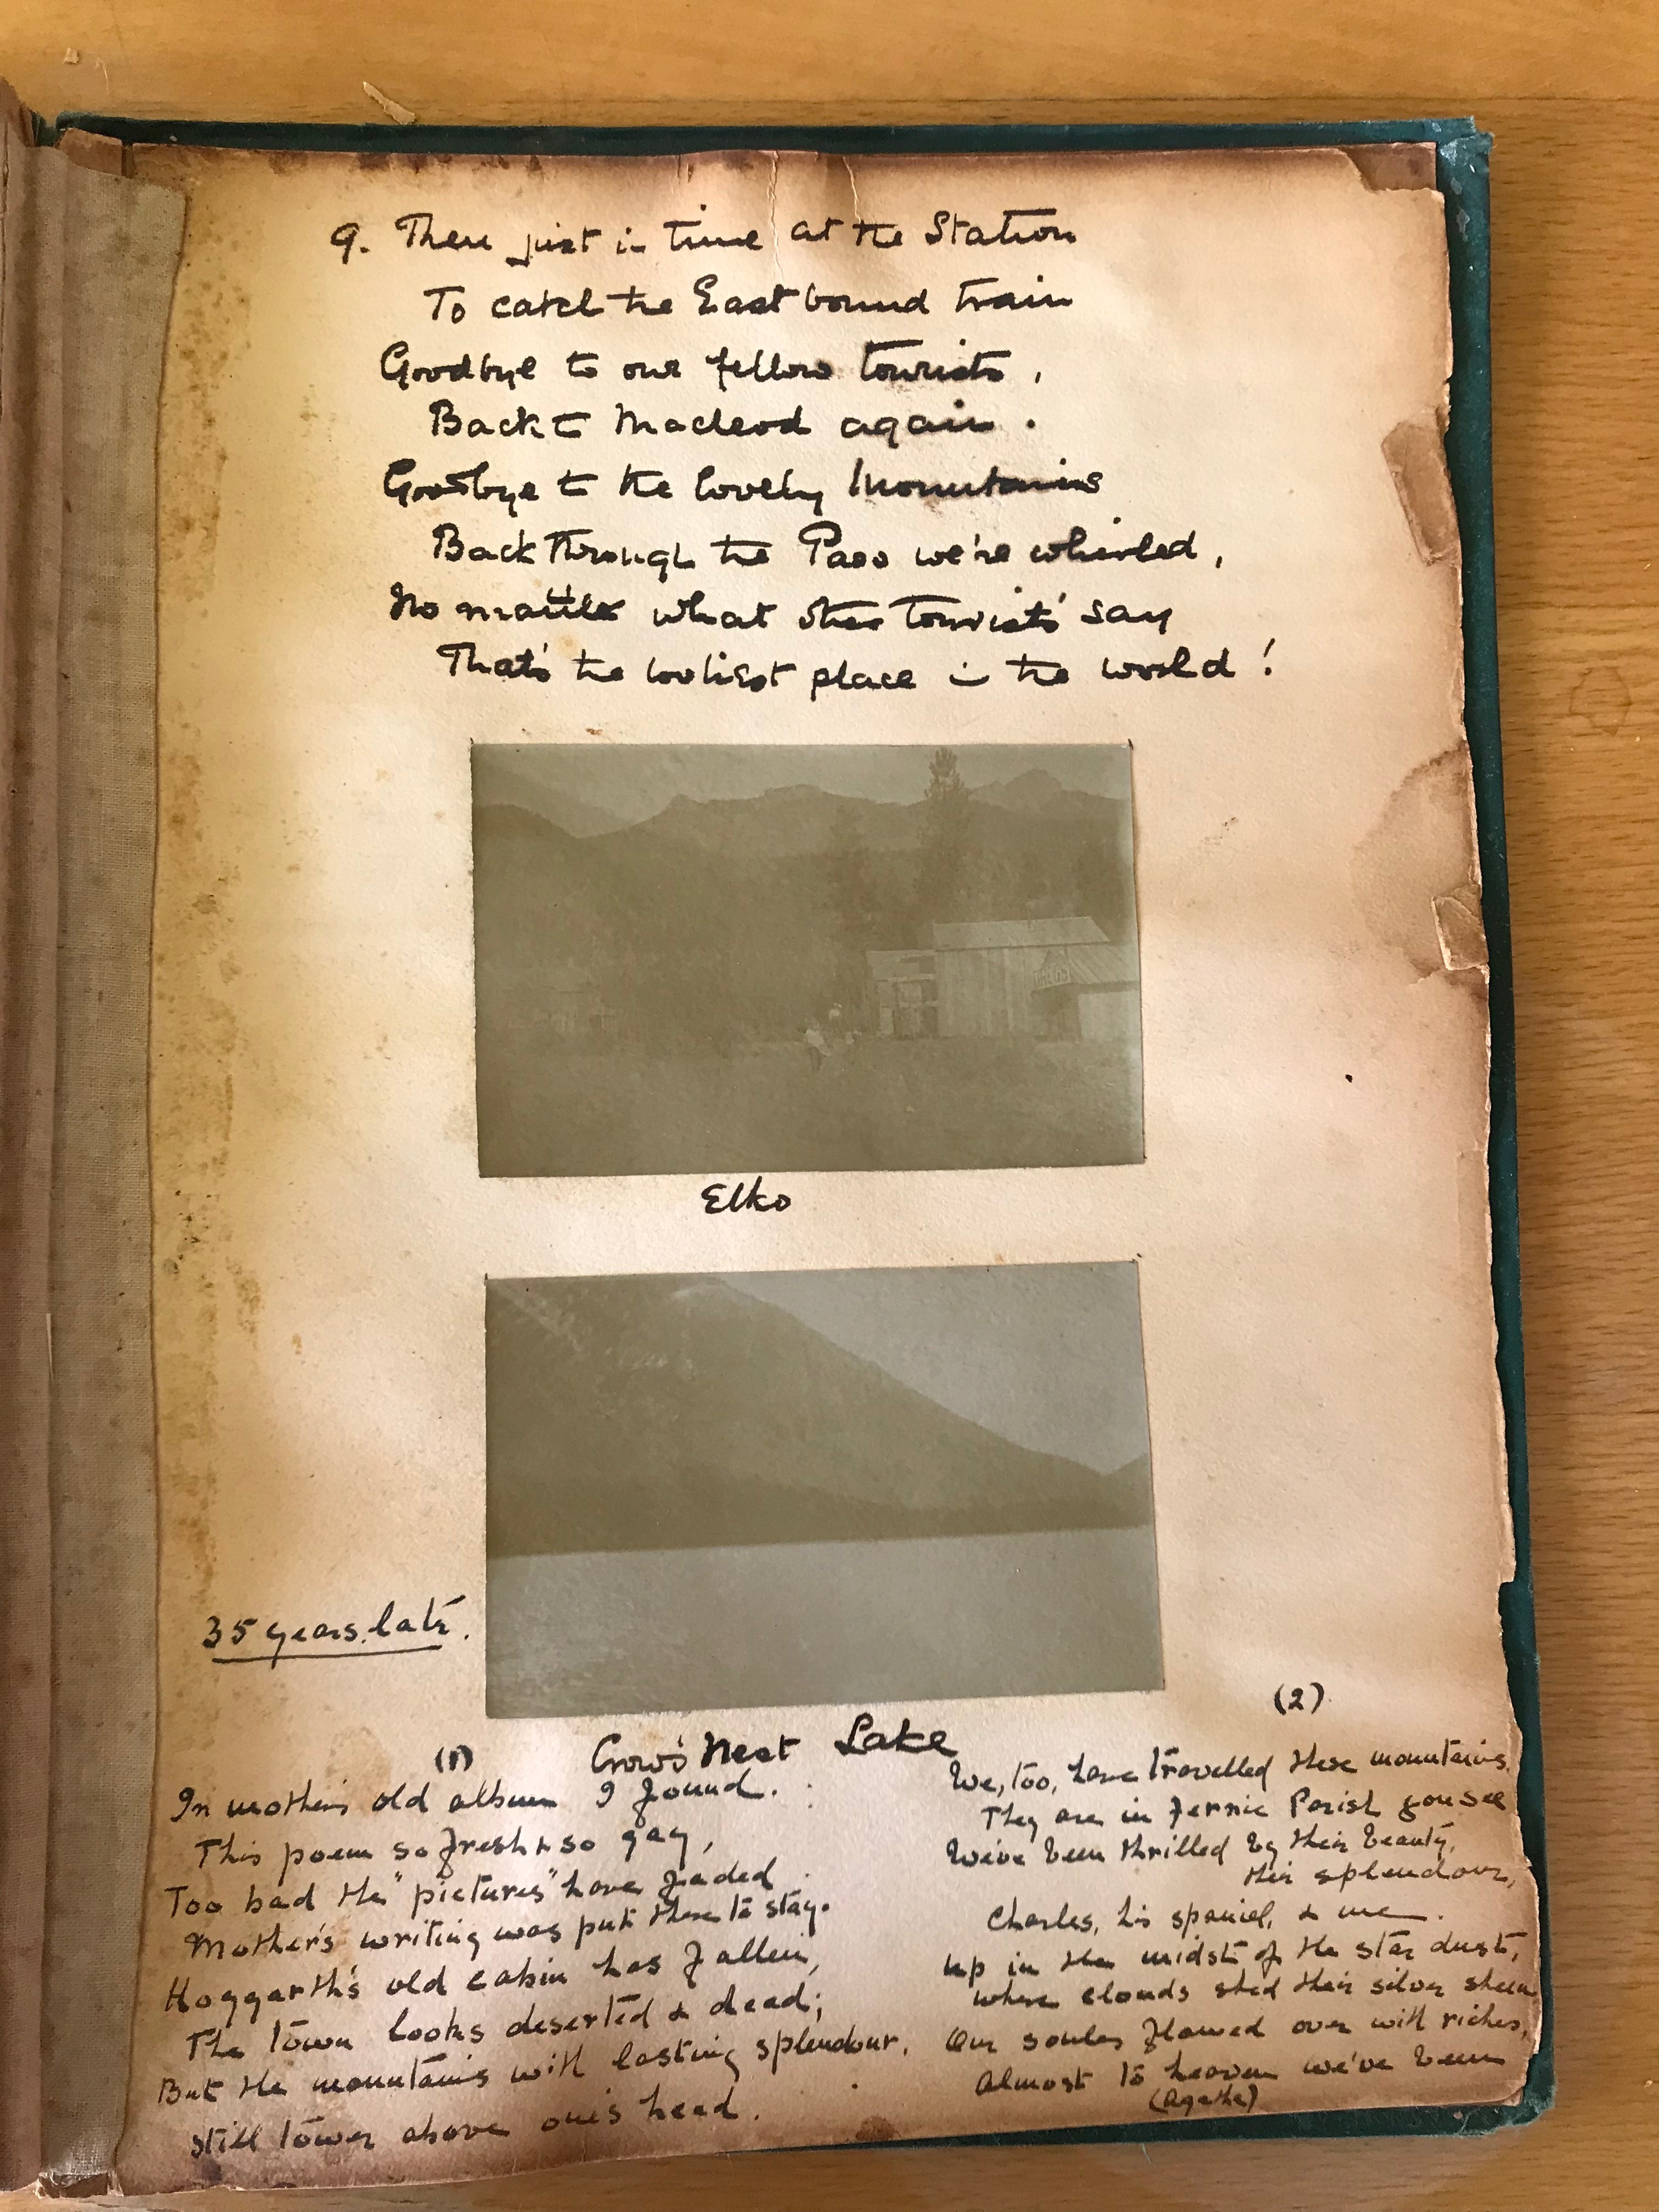 9. Then just in time at the Station
To catch the East bound train
Goodbye to our fellow tourists,
Back to Macleod again.
Goodbye to the lovely Mountains
Back through the Pass we're whirled,
No matter what other tourists' say
That's the lovliest place in the world!
Elko
35 years. later.
Crow's Nest Lake
(1)
In mother's old album I found.
This poem so fresh & so gay,
Too bad the "pictures" have faded
Mother's writing was put there to stay.
Hoggarth's old cabin has fallen,
The town looks deserted & dead;
But the mountains with lasting splendour,
Still tower above one's head.
(2)
We, too, have travelled these mountains.
They are in Fernie Parish you see
We've been thrilled by their beauty,
their splendour,
Charles, his spaniel, & me.
Up in the midst of the star dust,
where clouds shed their silver sheen
Our soules flowed over with riches,
Almost to heaven we've been
(Agatha)